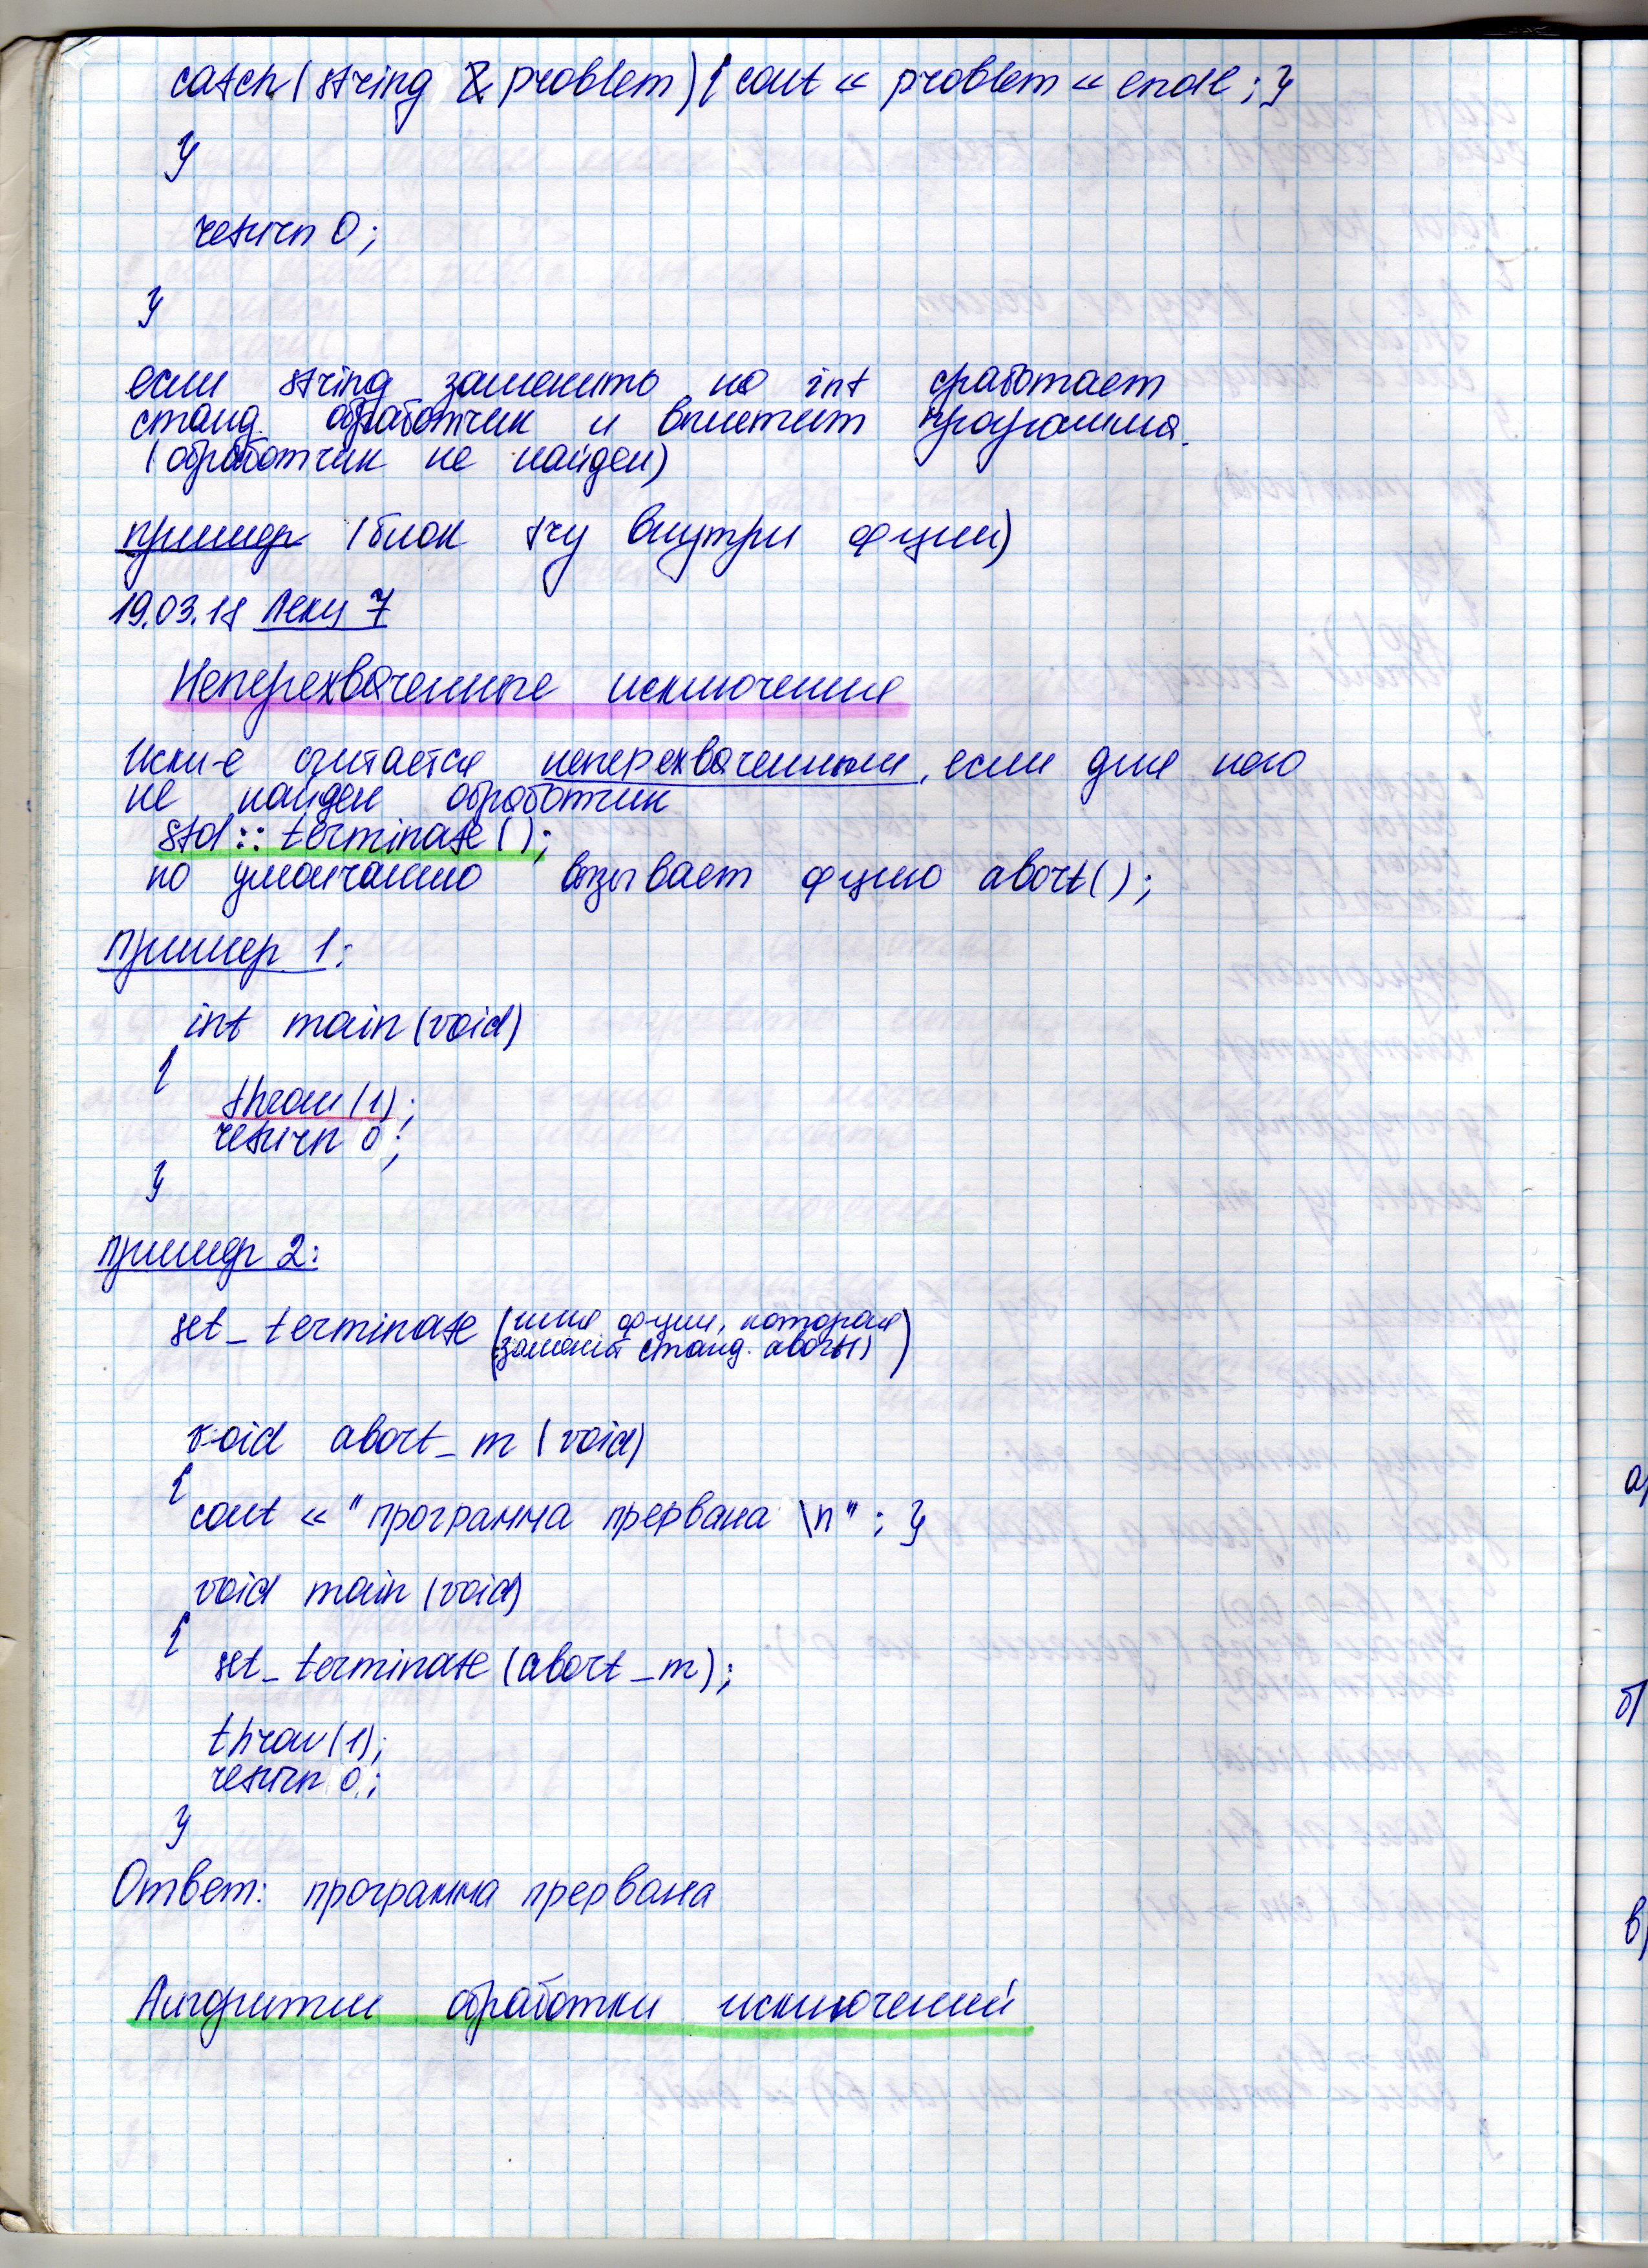 catch(string &problem){cout << problem << endl;}
}
return 0;
}
если string заменить на int сработает
станд. обработчик и вылетит программа.
(обработчик не найден)
пример (блок try внутри фции)
19.03.18 Лекц 7
Неперехваченные исключения
Искл-е считается неперехваченным, если для него
не найден обработчик
std::terminate();
по умолчанию вызывает фцию abort();
пример 1:
int main(void)
{
throw(1);
return 0;
}
пример 2:
set_terminate (имя фции, которая
заменит станд. abort)
void abort_m(void)
{
cout << "программа прервана \n"; }
void main(void)
{
set_terminate(abort_m);
throw(1);
return 0;
}
Ответ: программа прервана
Алгоритм обработки исключений
а)
б)
в)